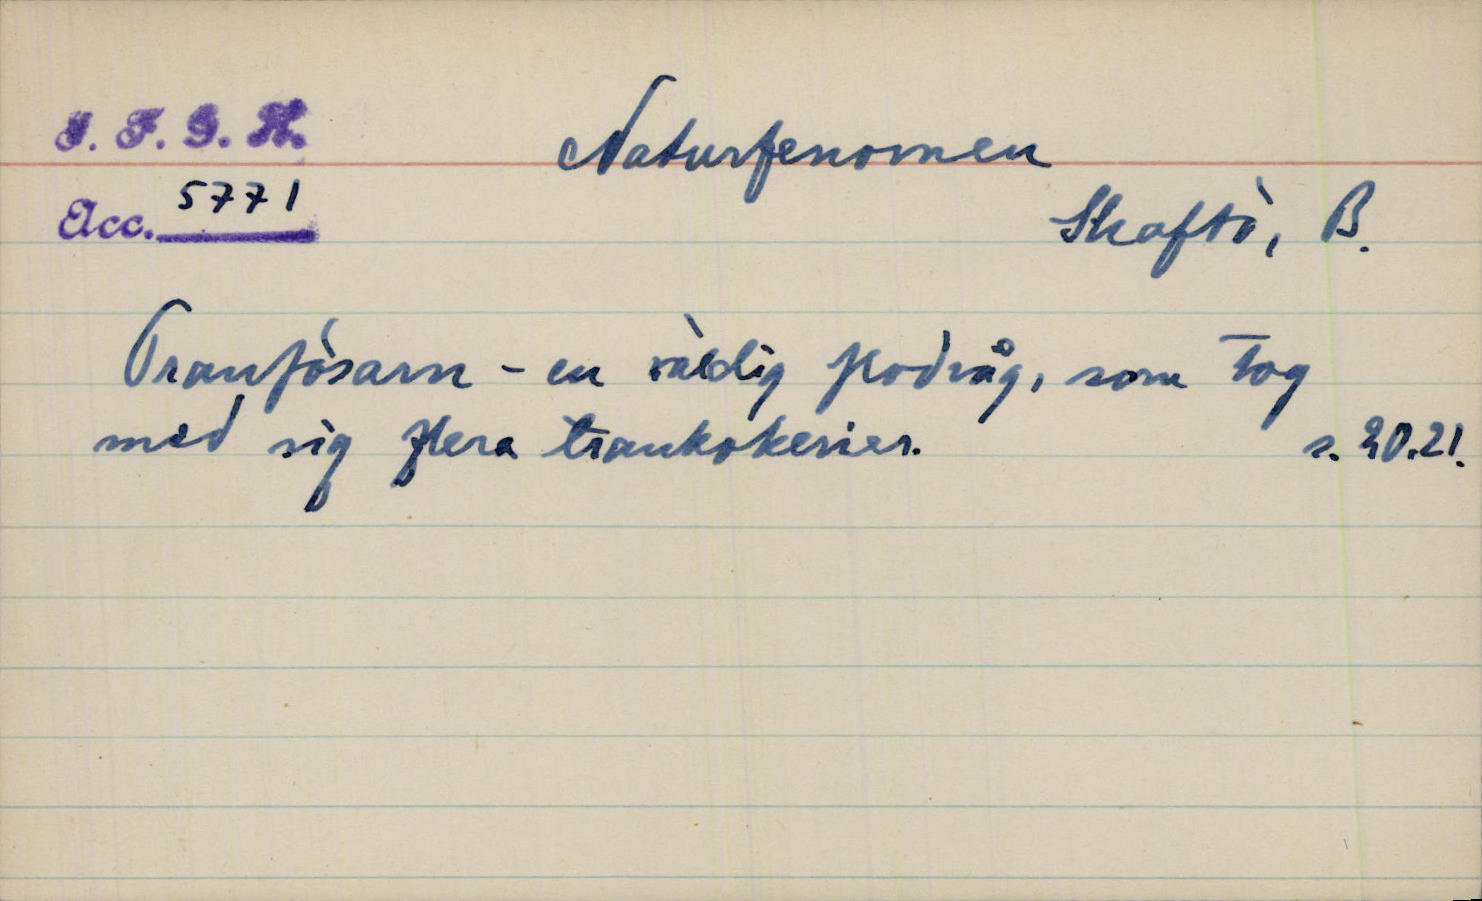 I. F. G. H.
Naturfenomen
Acc. 5771
Skaftö, B.
Tranfösarn - en väldig flodvåg, som tog
med sig flera trankokerier. s. 20.21.